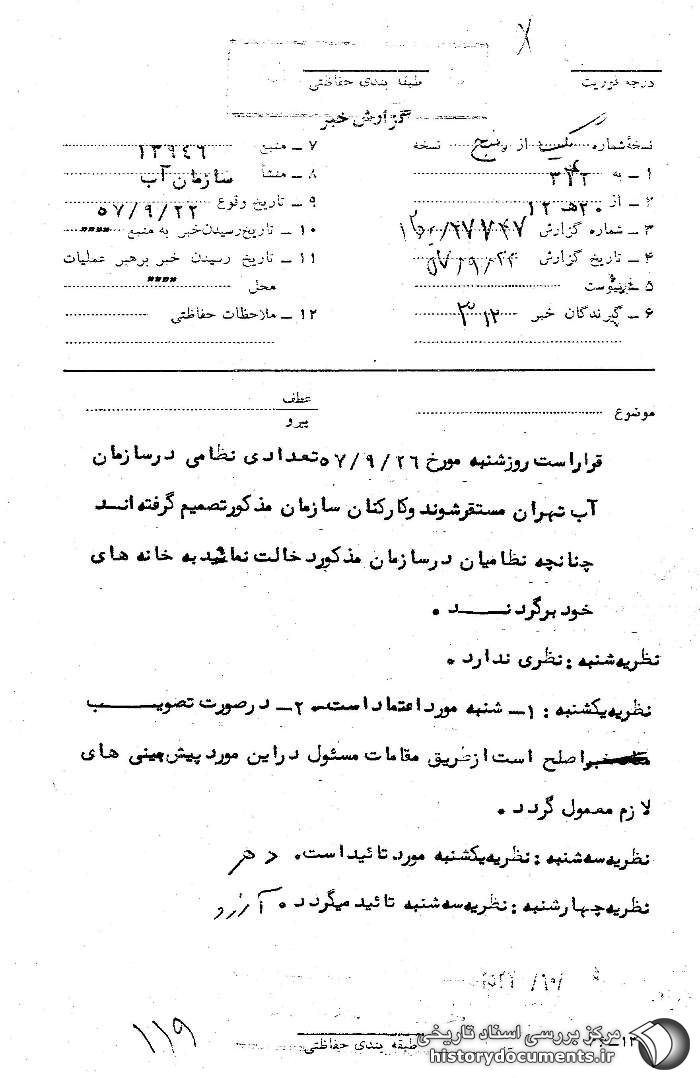 درجه فوریت
طبقه بندی حفاظتی
گزارش خبر
نسخهٔ شماره یک از پنج نسخه
۱ ـ به ۳۴۲
۲ ـ از ۲۰هـ۱۲
۳ ـ شماره گزارش
۴ ـ تاریخ گزارش
۵ ـ پیوست
۶ ـ گیرندگان خبر ۳۱۲
۷ ـ منبع ۱۳۹۴۶
۸ ـ منشأ سازمان آب
۹ ـ تاریخ وقوع ۵۷/۹/۲۲
۱۰ ـ تاریخ رسیدن خبر به منبع """"
۱۱ ـ تاریخ رسیدن خبر برهبر عملیات
محل """"
۱۲ ـ ملاحظات حفاظتی
موضوع
عطف
پیرو
قراراست روزشنبه مورخ ۵۷/۹/۲۶ تعدادی نظامی درسازمان
آب تهران مستقرشوند وکارکنان سازمان مذکورتصمیم گرفته‌انـد
چنانچه نظامیان درسازمان مذکوردخالت نمایندبه خانه های
خود برگردنــد .
نظریه‌شنبه : نظری ندارد .
نظریه‌یکشنبه : ۱ـ شنبه مورداعتماداست. ۲ـ درصورت تصویــب
اصلح است‌ازطریق مقامات مسئول دراین مورد پیش‌بینی های
لازم معمول گردد .
نظریه‌سه‌شنبه : نظریه‌یکشنبه مورد تائیداست. دهر
نظریه‌چهارشنبه : نظریه‌سه‌شنبه تائید میگردد . آرزو
۱۱۹
طبقه بندی حفاظتی
مرکز بررسی اسناد تاریخی
historydocuments.ir